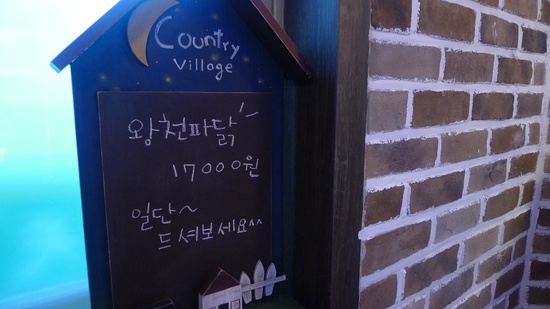 Country
Village
왕천파닭
17000원
일단~
드셔보세요^^